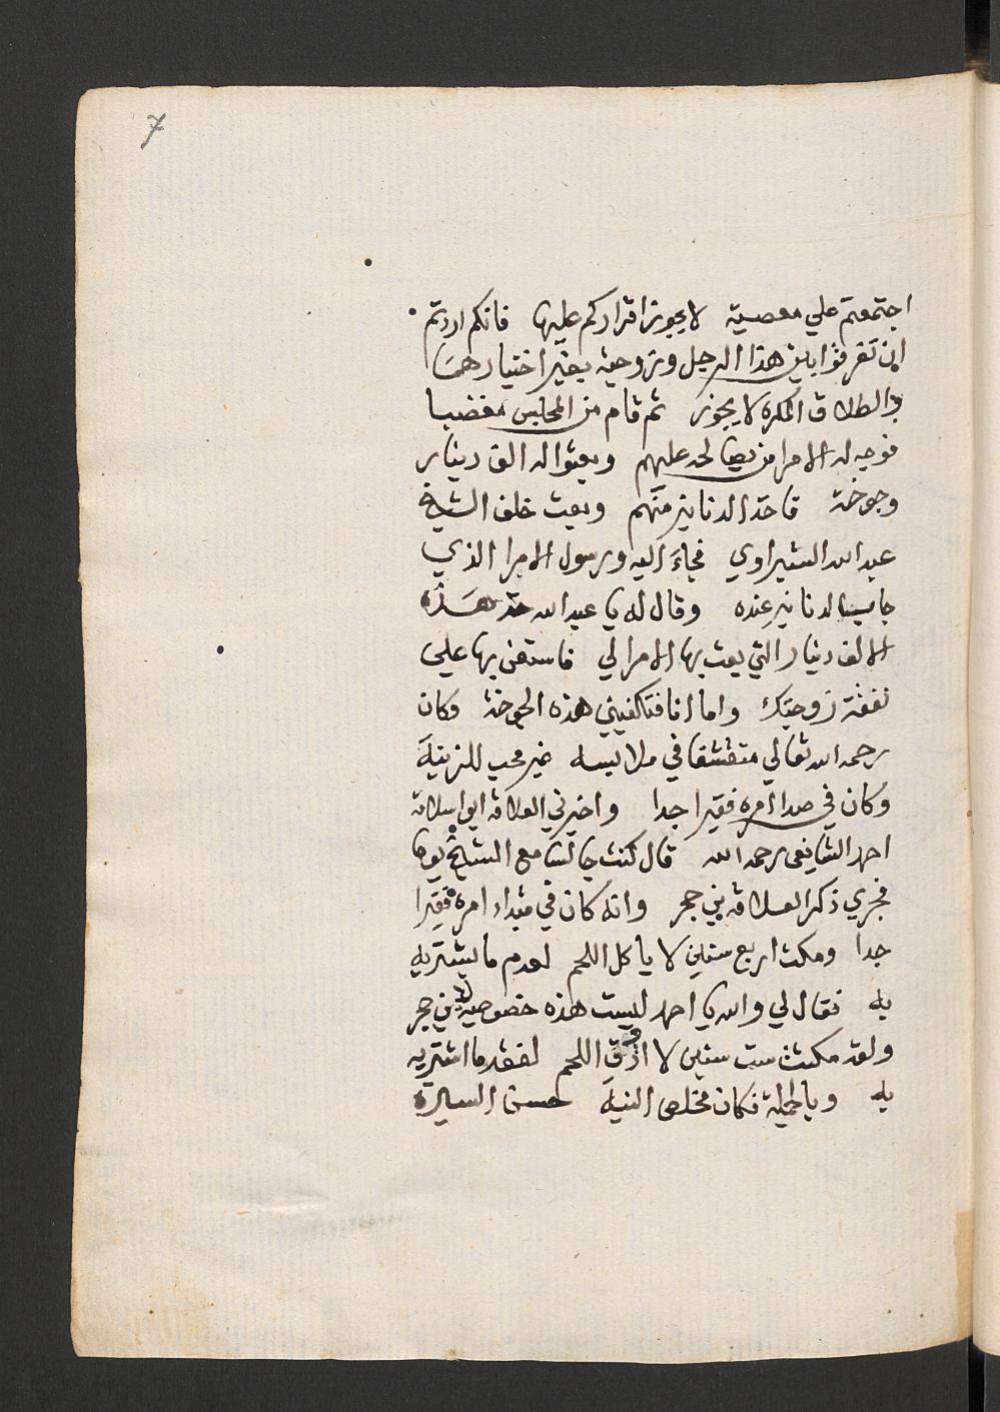 7
اجتمعتم علي معصية لا يجوز اقراركم عليها فانكم اردتم
ان تفرقوا بين هذا الرجل وزوجته بغير اختيارهما
والطلاق المكره لا يجوز ثم قام من المجلس مغضبا
فوجه له الامرا من يصالحه عليهم وبعثوا له الف دينار
وجوخة فاخذ الدنانير منهم وبعث خلف الشيخ
عبد الله الشبراوي فجاء اليه ورسول الامرا الذي
جا بالدنانير عنده وقال له يا عبد الله خذ هذه
الالف دينار التي بعث بها الامرا لي فاستعن بها علي
نفقة زوجتك واما انا فتكفيني هذه الجوخة وكان
رحمه الله تعالي متقشفا في ملابسه غير محب للزينة
وكان في صدا امره فقيرا جدا واخبرني العلامة ابو سلامة
احمد الشافعي رحمه الله قال كنت جالسا مع الشيخ يوما
فجري ذكر العلامة بن حجر وانه كان في مبداء امره فقيرا
جدا ومكث اربع سنين لا ياكل اللحم لعدم ما يشتريه
به فقال لي والله يا احمد ليست هذه خصوصية لابن حجر
ولقد مكثت ست سنين لا اذوق اللحم لفقد ما اشتريه
به وبالجملة فكان مخلص النية حسن السيرة